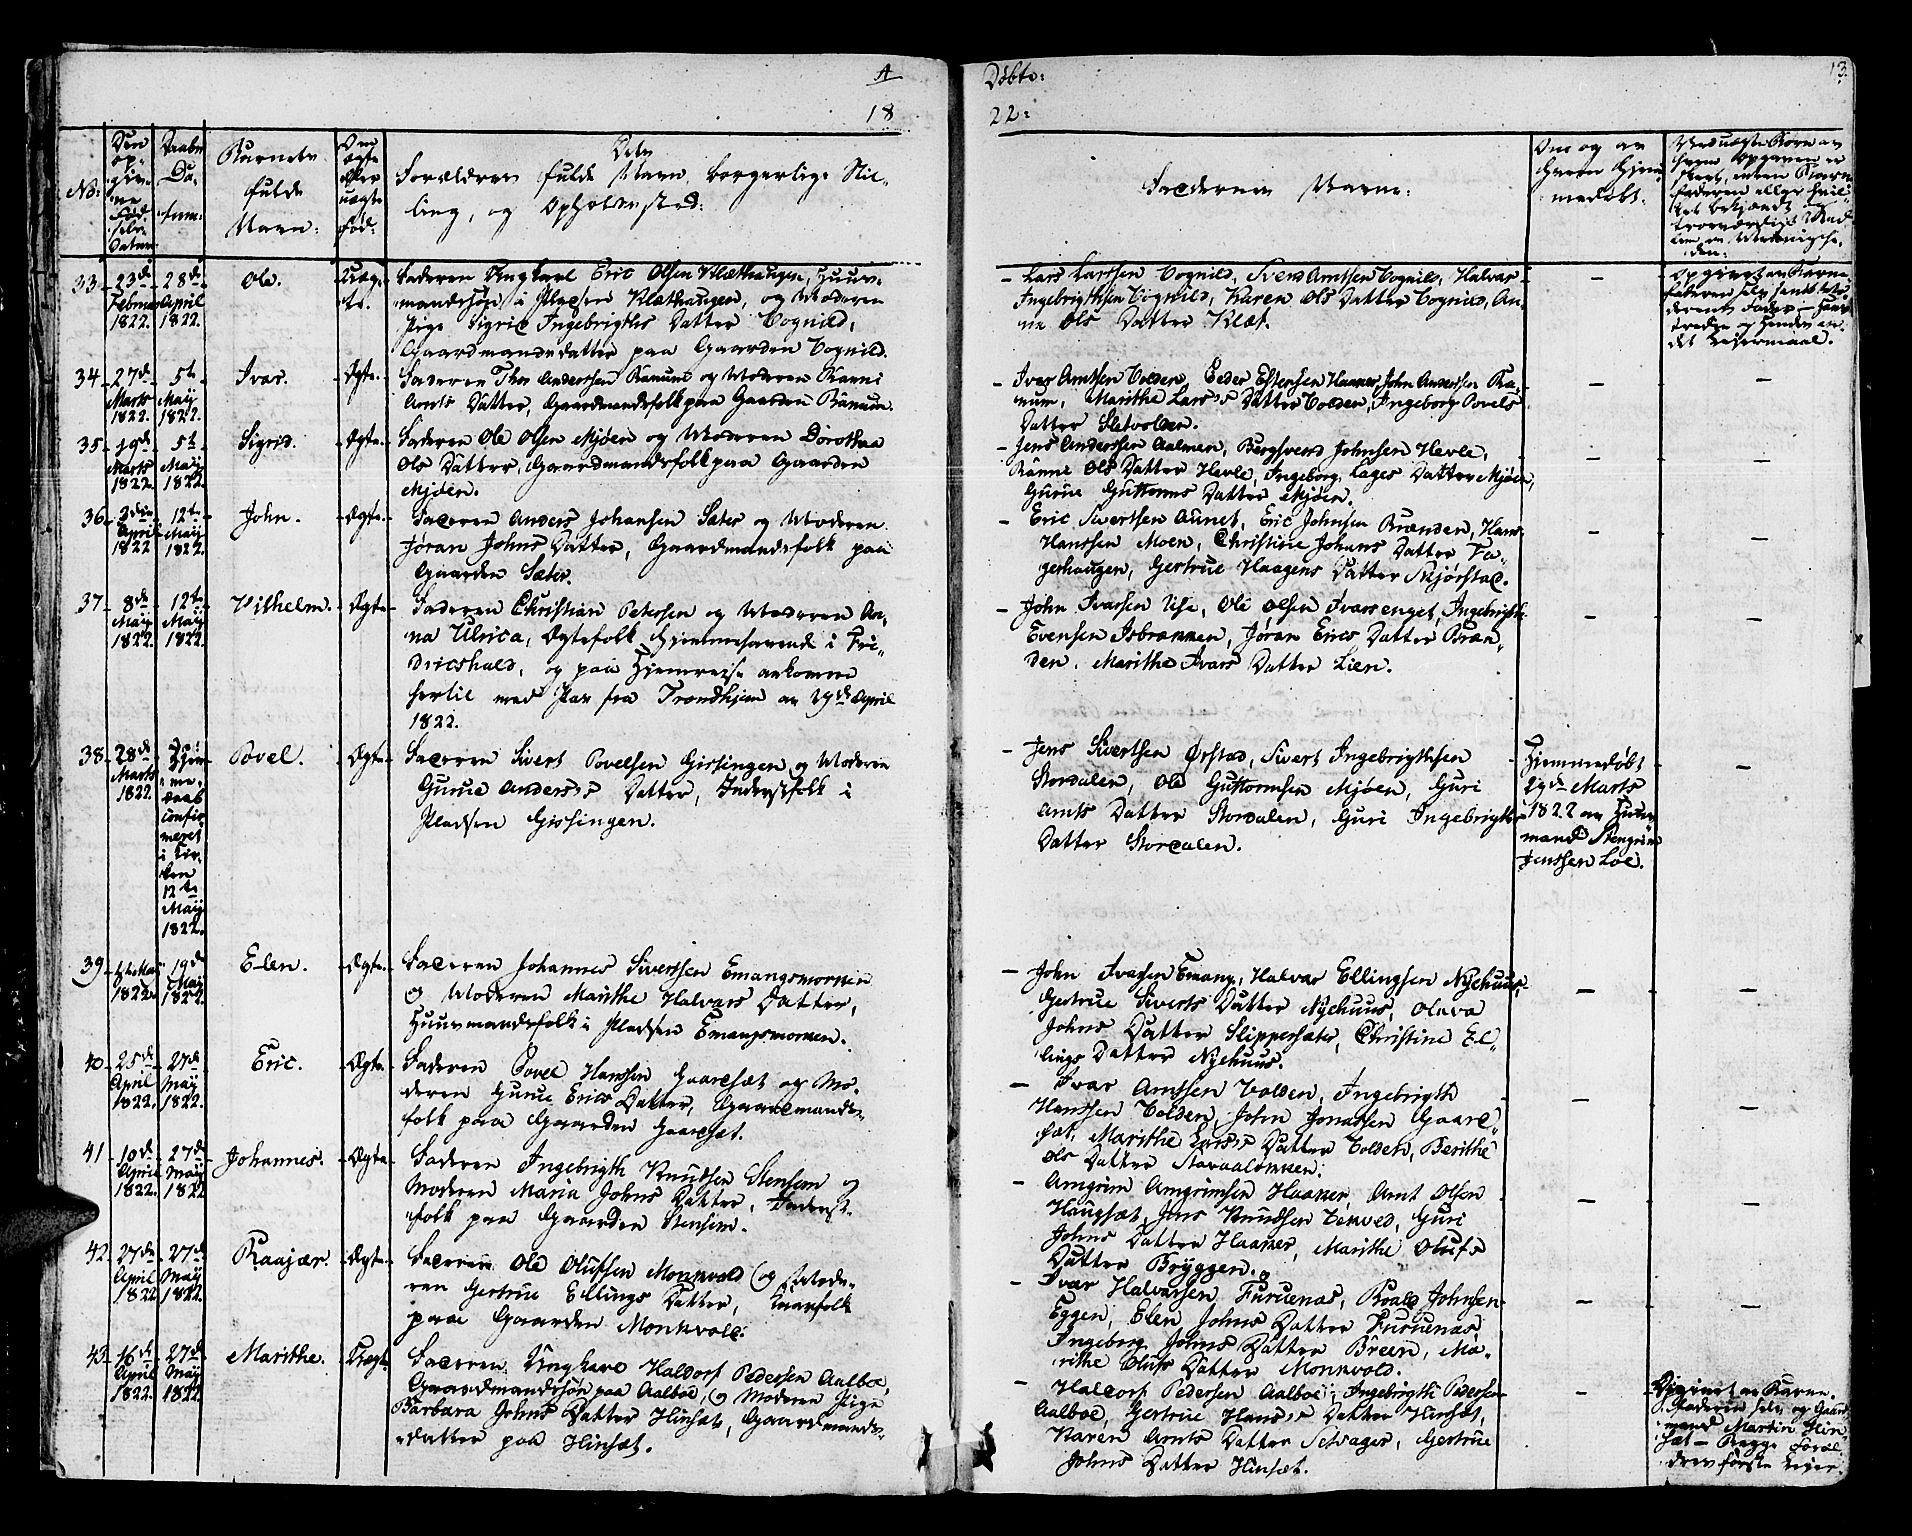 A
Døbte:
13.
18
22:
No:
Den op-
giv-
ne
Fød-
sels-
Datum
Daabs
Da-
tum:
Barnets
fulde
Navn:
Om
ægte
eller
uægte
fød:
Forældrenes fulde Navn, borgerlige Stil-
ling, og Opholdssted:
Faddernes Navne:
Om og av
hvem Hjem-
medøbt:
33. 23de Februar 1822. 28de April 1822. Ole. Uæg-
te.
Faderen Ungkarl Eric Olsen Klæthaugen, Huus-
mandssøn i Pladsen Klæthaugen, og Moderen
Pige Sigrid Ingebrigths Datter Vognild,
Gaardmandsdatter paa Gaarden Vognild.
- Lars Larssen Vognild, Svend Arntsen Vognild, Halvar
Ingebrigthsen Vognild, Karen Ols Datter Vognild, An-
ne Ols Datter Klæt.
-
Opgivet av Barne-
faderen selv
34. 27de Marts 1822. 5te May 1822. Ivar. Ægte.
Faderen Thor Anderssen Ramund og Moderen Karni
Arnts Datter, Gaardmandsfolk paa Gaarden Ranum.
- Ivar Arntsen Volden, Peder Estensen Haaker, John Anderssen Ra-
num, Marithe Lars Datter Volden, Ingeborg Povels
Datter Sletvolden.
35. 19de Marts 1822. 5te May 1822. Sigrid. Ægte.
Faderen Ole Olsen Mjøen og Moderen Dorothea
Ols Datter, Gaardmandsfolk paa Gaarden
Mjøen.
- Jens Anderssen Aalmen, Bergsvend Johnsen Hevle,
Rønne Ols Datter Hevle, Ingeborg Lages Datter Mjøen,
Gurue Guttorms Datter Mjøen.
36. 2den April 1822 12te May 1822. John. Ægte.
Faderen Anders Johansen Sæter og Moderen
Jøran Johns Datter, Gaardmandsfolk paa
Gaarden Sæter.
- Eric Sivertsen Aunet, Eric Johnsen Brænden, Hans
Hanssen Moen, Christine Johans Datter Fa-
gerhaugen, Gertrue Haagens Datter Skjørstad.
37. 8de May 1822. 12te May 1822. Vilhelm. Ægte
Faderen Christian Petersen og Moderen An-
na Ulrica, Ægtefolk hjemmehørende i Fri-
dricshald, og paa Hjemreise ankomne
hertil med Pas fra Trondhjem av 29de April
1822.
- John Ivarsen Vise, Ole Olsen Ivarsenget, Ingebrigth
Evensen Isbrækken, Jøran Erics Datter Bræn-
den, Marithe Ivars Datter Lien.
38. 28de Marts 1822. Hjem-
me-
daab
confir-
meret
i Kir-
ken
12te
May
1822. Povel. Ægte
Faderen Sivert Povelsen Gissingen og Moderen
Gurue Anders Datter, Inderstfolk i
Pladsen Gissingen.
- Jens Sivertsen Ørstad, Sivert Ingebrigthsen
Stordalen, Ole Guttormsen Mjøen, Guri
Arnts Datter Stordalen, Guri Ingebrigths
Datter Stordalen.
Hjemmedøbt
29de Marts
1822 av Huus-
mand Stengrim
Jenssen Loe.
39. 4de May 1822. 19de May 1822. Elen. Ægte.
Faderen Johannes Sivertsen Emangsmoen
og Moderen Marithe Halvars Datter,
Huusmandsfolk i Pladsen Emangsmoen.
- John Ivarsen Emang, Halvar Ellingsen Nyehuus,
Gertrue Siverts Datter Nyehuus, Olava
Johns Datter Slippersæter, Christine El-
lings Datter Nyehuus.
40. 25de April 1822. 27de May 1822. Eric. Ægte
Faderen Povel Hanssen Gaardsæt og Mo-
deren Gurue Erics Datter, Gaardmands-
folk paa Gaarden Gaardsæt.
- Ivar Arntsen Volden, Ingebrigth
Hanssen Volden, John Jonassen Gaard-
sæt, Marithe Lars Datter Volden, Berithe
Ols Datter
41 10de April 1822. 27de May 1822 Johannes. Ægte
Faderen Ingebrigth Knudsen Stensem og
Moderen Maria Johns Datter, Inderst-
folk paa Gaarden Stensem.
- Amgrim Amgrimsen Haaker, Arnt Olsen
Haugsæt, Jens Knudsen Tonved, Guri
Johns Datter Haaker, Marithe Olufs
Datter Bryggen.
42 27de April 1822 27de May 1822. Raajær. Ægte
Faderen Ole Olufsen Monkvold og Mode-
ren Gertrue Ellings Datter,
paa Gaarden Monkvold.
- Ivar Halvarsen Furuenas, Roald Johnsen
Eggen, Elen Johns Datter Furuenas,
Ingeborg Johns Datter Breen, Ma-
rithe Olufs Datter Monkvold.
43. 16de April 1822. 27de May 1822. Marithe. Uægte
Faderen Ungkarl Haldorf Pedersen Aalboe,
Gaardmandssøn paa Aalboe, og Moderen Pige
Barbara Johns Datter Hinsæt, Gaardmands-
datter paa Hinsæt.
- Haldorf Pedersen Aalboe, Ingebrigth Pedersen
Aalboe, Gertrue Hans Datter Hinsæt,
Karen Arnts Datter Selvager, Gertrue
Johns Datter Hinsæt.
Opgivet av Barne-
faderen selv og Gaard-
mand Martin Hin-
sæt - Begge Foræl-
dres første Leier-